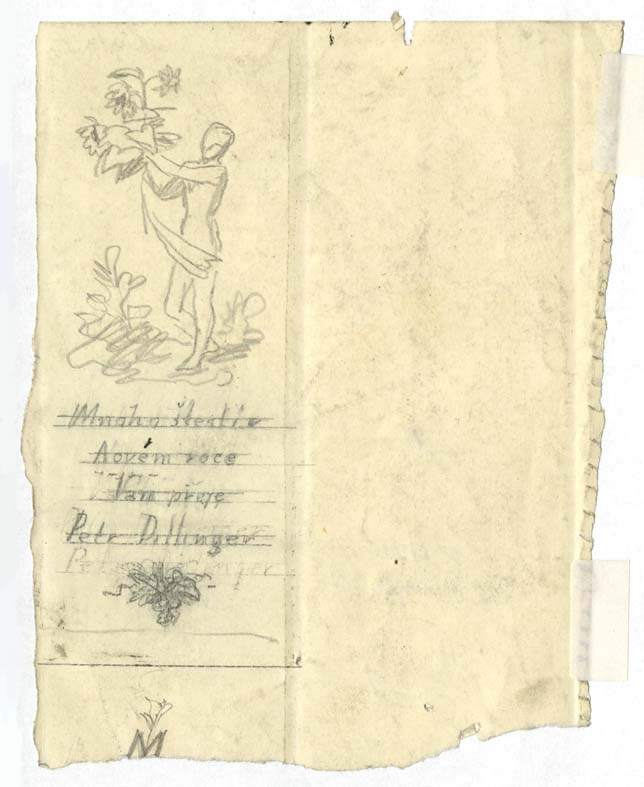 Mnoho štěstí v
Novém roce
Vám přeje
Petr Dillinger
Petr Dillinger
M